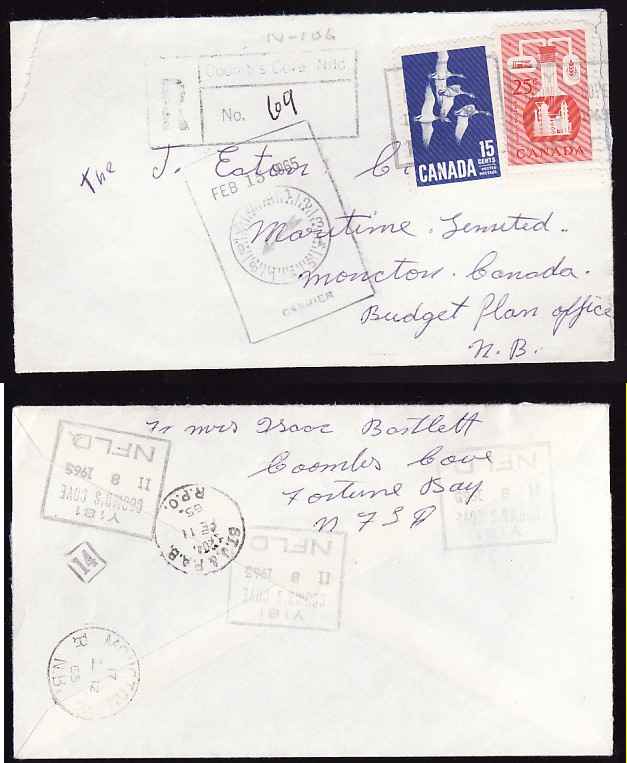 N-106
Coomb's Cove Nfld
No. 69
The T. Eaton Co
FEB 15 1965
15
CENTS
POSTES POSTAGE
CANADA
25¢
CANADA
Maritime. Limited.
Moncton. Canada.
CASHIER
Budget Plan office
N.B.
Fr Mrs Isaac Bartlett
Coombs Cove
Fortune Bay
NFLD
Y181
COOMB'S COVE
II 8 1965
NFLD.
ST.J. & P.A.B.
FE 11
65
R.P.O.
14
Y181
COOMB'S COVE
II 8 1965
NFLD
NFLD
II 8 1965
COOMB'S COVE
Y181
MONCTON
17
II 12
65
R N.B.